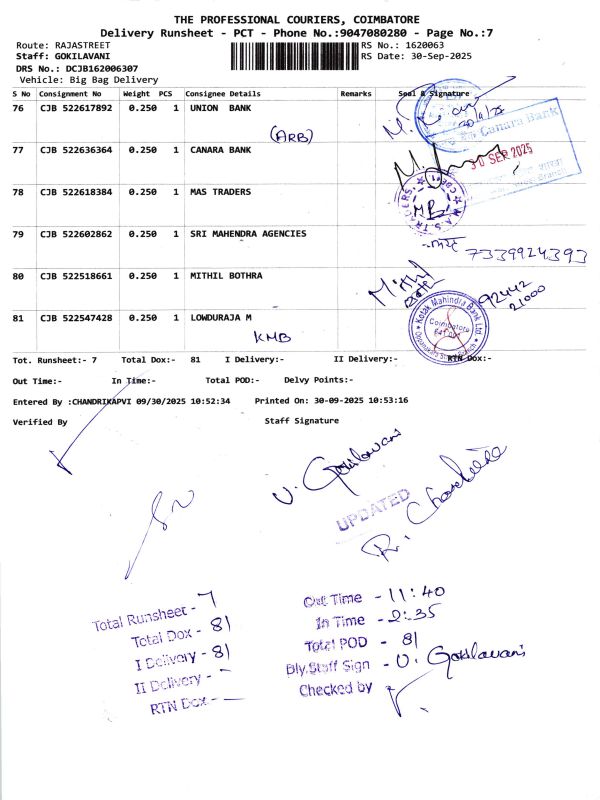 THE PROFESSIONAL COURIERS, COIMBATORE
Delivery Runsheet - PCT - Phone No.:9047080280 - Page No.:7
Route: RAJASTREET RS No.: 1620063
Staff: GOKILAVANI RS Date: 30-Sep-2025
DRS No.: DCJB162006307
Vehicle: Big Bag Delivery
S No Consignment No Weight PCS Consignee Details Remarks Seal & Signature
76 CJB 522617892 0.250 1 UNION BANK
(ARB)
30/9/25
77 CJB 522636364 0.250 1 CANARA BANK
Canara Bank
30 SEP 2025
78 CJB 522618384 0.250 1 MAS TRADERS
M.A.S. TRADERS
CBE-1
79 CJB 522602862 0.250 1 SRI MAHENDRA AGENCIES
7339924393
80 CJB 522518661 0.250 1 MITHIL BOTHRA
Mithil
92442
21000
81 CJB 522547428 0.250 1 LOWDURAJA M
KMB
Kotak Mahindra Bank Ltd
Coimbatore
Tot. Runsheet:- 7 Total Dox:- 81 I Delivery:- II Delivery:- RTN Dox:-
Out Time:- In Time:- Total POD:- Delvy Points:-
Entered By :CHANDRIKAPVI 09/30/2025 10:52:34 Printed On: 30-09-2025 10:53:16
Verified By Staff Signature
V. Gokilavani
UPDATED
Total Runsheet - 7
Total Dox - 81
I Delivery - 81
II Delivery - -
RTN Dox - -
Out Time - 11:40
In Time - 2:35
Total POD - 81
Dly.Staff Sign - V. Gokilavani
Checked by